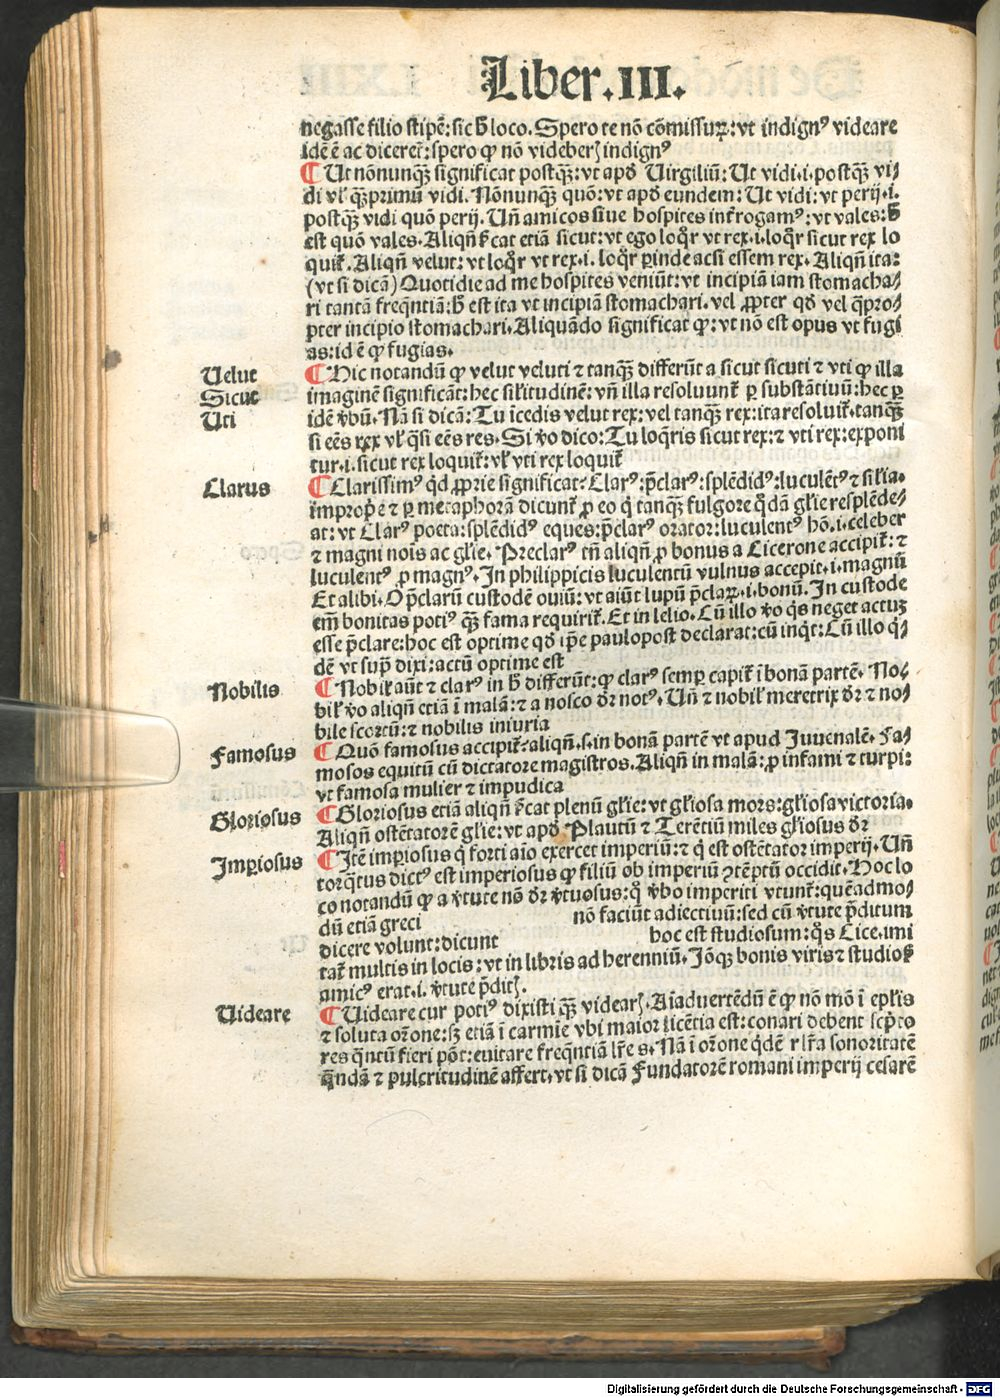 Liber.III.
negasse filio stipē: sic h̄ loco. Spero te nō cōmissuꝝ: vt indignꝰ videare
idē ē ac diceret̄: spero ꝙ nō videberꝭ indignꝰ
¶ Ut nōnunqꝫ significat postqꝫ: vt apđ Uirgiliū: Ut vidi .i. postqꝫ vi⸗
di vl̓ qꝫprimū vidi. Nōnunqꝫ quō: vt apđ eundem: Ut vidi: vt perij .i.
postqꝫ vidi quō perij. Uñ amicos siue hospites int̓rogamꝰ: vt vales: h̄
est quō vales. Aliqñ s̓cat etiā sicut: vt ego loqr̓ vt rex .i. loqr̓ sicut rex lo
quit̓. Aliqñ velut: vt loqr̓ vt rex .i. loqr̓ ꝑinde acsi essem rex. Aliqñ ita:
(vt si dicā) Quotidie ad me hospites veniūt: vt incipiā iam stomacha⸗
ri tantā freqn̄tiā: h̄ est ita vt incipiā stomachari. vel ꝓpter qđ vel q̄pro⸗
pter incipio stomachari. Aliquādo significat ꝙ: vt nō est opus vt fugi
as: id ē ꝙ fugias.
Uelut
Sicut
Uti
¶ Hic notandū ꝙ velut veluti ⁊ tanqꝫ differūt a sicut sicuti ⁊ vti ꝙ illa
imaginē significāt: hec sil̓itudinē: vñ illa resoluunt̓ ꝑ substātiuū: hec ꝑ
idē v̓bū. Nā si dicā: Tu īcedis velut rex: vel tanqꝫ rex: ita resoluit̓. tanqꝫ
si eēs rex vl̓ q̄si eēs res. Si v̓o dico: Tu loq̄ris sicut rex: ⁊ vti rex: exponi
tur .i. sicut rex loquit̓: vl̓ vti rex loquit̓
Clarus
¶ Clarissimꝰ qđ ꝓprie significat: Clarꝰ: p̄clarꝰ: splēdidꝰ: luculētꝰ ⁊ sil̓ia:
impropˀe ⁊ ꝑ metaphorā dicunt̓ ꝓ eo q̇ tanqꝫ fulgore q̊dā gl̓ie resplēde⸗
at: vt Clarꝰ poeta: splēdidꝰ eques: p̄clarꝰ orator: luculentꝰ hō .i. celeber
⁊ magni noīs ac gl̓ie. Preclarꝰ tñ aliqñ ꝓ bonus a Cicerone accipit̓: ⁊
luculentꝰ ꝓ magnꝰ. In philippicis luculentū vulnus accepit .i. magnū
Et alibi. O p̄clarū custodē ouiū: vt aiūt lupū p̄claꝝ .i. bonū. In custode
em̄ bonitas potiꝰ qꝫ fama requirit̓. Et in lelio. Cū illo v̓o q̇s neget actuꝫ
esse p̄clare: hoc est optime qđ ip̄e paulopost declarat: cū inqͥt: Cū illo q̇⸗
dē vt sup̄ dixi: actū optime est
Nobilis
¶ Nobil̓ aūt ⁊ clarꝰ in h̄ differūt: ꝙ clarꝰ semꝑ capit̓ ī bonā partē. No⸗
bil̓ v̓o aliqñ etiā ī malā: ⁊ a nosco dr̄ notꝰ. Uñ ⁊ nobil̓ meretrix dr̄ ⁊ no⸗
bile scortū: ⁊ nobilis iniuria
Famosus
¶ Quō famosus accipit̓: aliqñ .s. in bonā partē vt apud Juuenalē. Fa⸗
mosos equitū cū dictatore magistros. Aliqñ in malā: ꝓ infami ⁊ turpi:
vt famosa mulier ⁊ impudica
Gloriosus
¶ Gloriosus etiā aliqñ s̓cat plenū gl̓ie: vt gl̓iosa mors: gl̓iosa victoria.
Aliqñ ostētatorē glie: vt apđ Plautū ⁊ Terētiū miles gl̓iosus dr̄
Impiosus
¶ Itē imꝑiosus q̇ forti aīo exercet imperiū: ⁊ q̇ est ostētator imperij. Uñ
torq̄tus dictꝰ est imperiosus ꝙ filiū ob imperiū ꝯtēptū occidit. Hoc lo
co notandū ꝙ a v̓tute nō dr̄ v̓tuosus: q̊ v̓bo imperiti vtunt̓: quēadmo⸗
dū etiā greci nō faciūt adiectiuū: sed cū v̓tute p̄ditum
dicere volunt: dicunt hoc est studiosum: q̊s Cice. imi
tat̓ multis in locis: vt in libris ad herenniū. Jōqꝫ bonis viris ⁊ studiosꝭ
amicꝰ erat .i. v̓tute p̄ditꝭ.
Uideare
¶ Uideare cur potiꝰ dixisti qꝫ videarꝭ. Aīaduertēdū ē ꝙ nō mō ī epl̓is
⁊ soluta or̄one: sꝫ etiā ī carmīe vbi maior licētia est: conari debent scp̄to
res qn̄tū fieri pōt: euitare freqn̄tiā lr̄e s. Nā ī or̄one qͥdē r lr̄a sonoritatē
q̄ndā ⁊ pulcritudinē affert. vt si dicā Fundatorē romani imperij cesarē
Digitalisierung gefördert durch die Deutsche Forschungsgemeinschaft - DFG